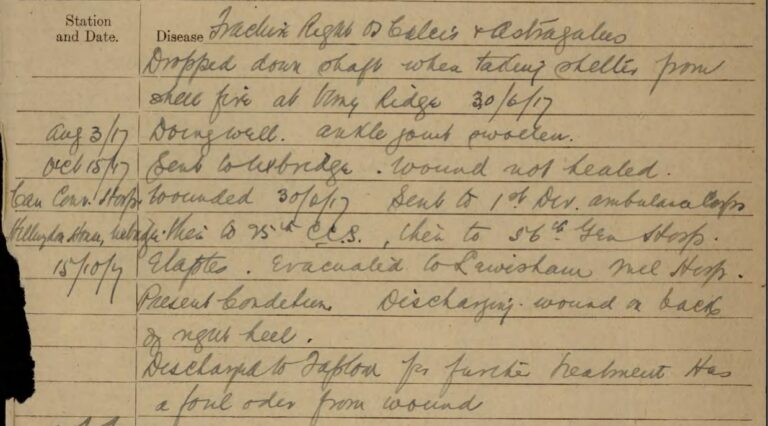 Station
and Date.
Disease Fracture Right Os Calcis & Astragalus
Dropped down shaft when taking shelter from
shell fire at Vimy Ridge 30/6/17
Aug 3/17 Doing well. ankle joint swollen.
Oct 15/17 Sent to Uxbridge. Wound not healed.
Can Conv. Hosp. Wounded 30/6/17 Sent to 1st Div. ambulance Corps
Hillingdon House, then to 25th C.C.S., then to 56th Gen Hosp.
15/10/17 Etaples. Evacuated to Lewisham Mil Hosp.
Present Condition Discharging wound on back
of right heel.
Discharged to Taplow for further treatment Has
a foul oder from wound